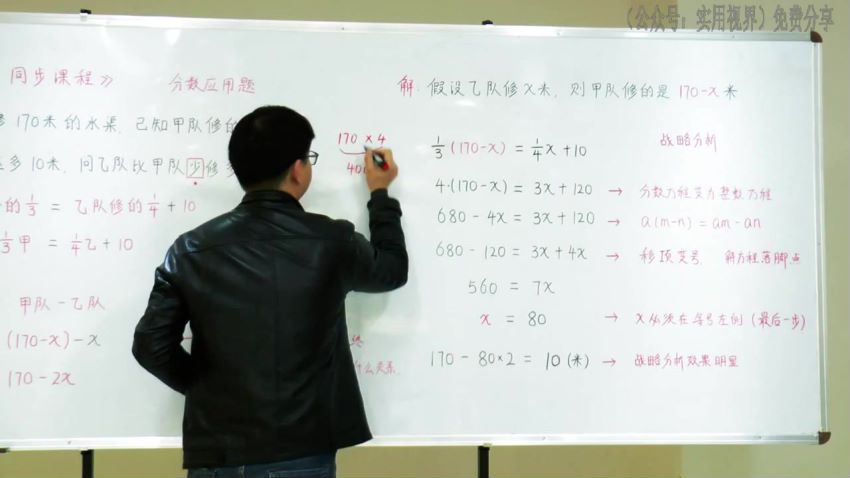 (公众号:实用视界)免费分享
同步课程》 分数应用题
170米的水渠,已知甲队修的
多10米,问乙队比甲队少修多
的1/3 = 乙队修的1/4 + 10
1/3甲 = 1/4乙 + 10
甲队-乙队
(170-x)-x
170-2x
170 × 4
400
什么关系
解:假设乙队修x米,则甲队修的是170-x米
1/3(170-x) = 1/4x+10 战略分析
4·(170-x) = 3x+120 → 分数方程变为整数方程
680-4x = 3x+120 → a(m-n) = am-an
680-120 = 3x+4x → 移项变号,解方程落脚点
560 = 7x
x = 80 → x必须在等号左侧(最后一步)
170-80×2 = 10(米) → 战略分析效果明显